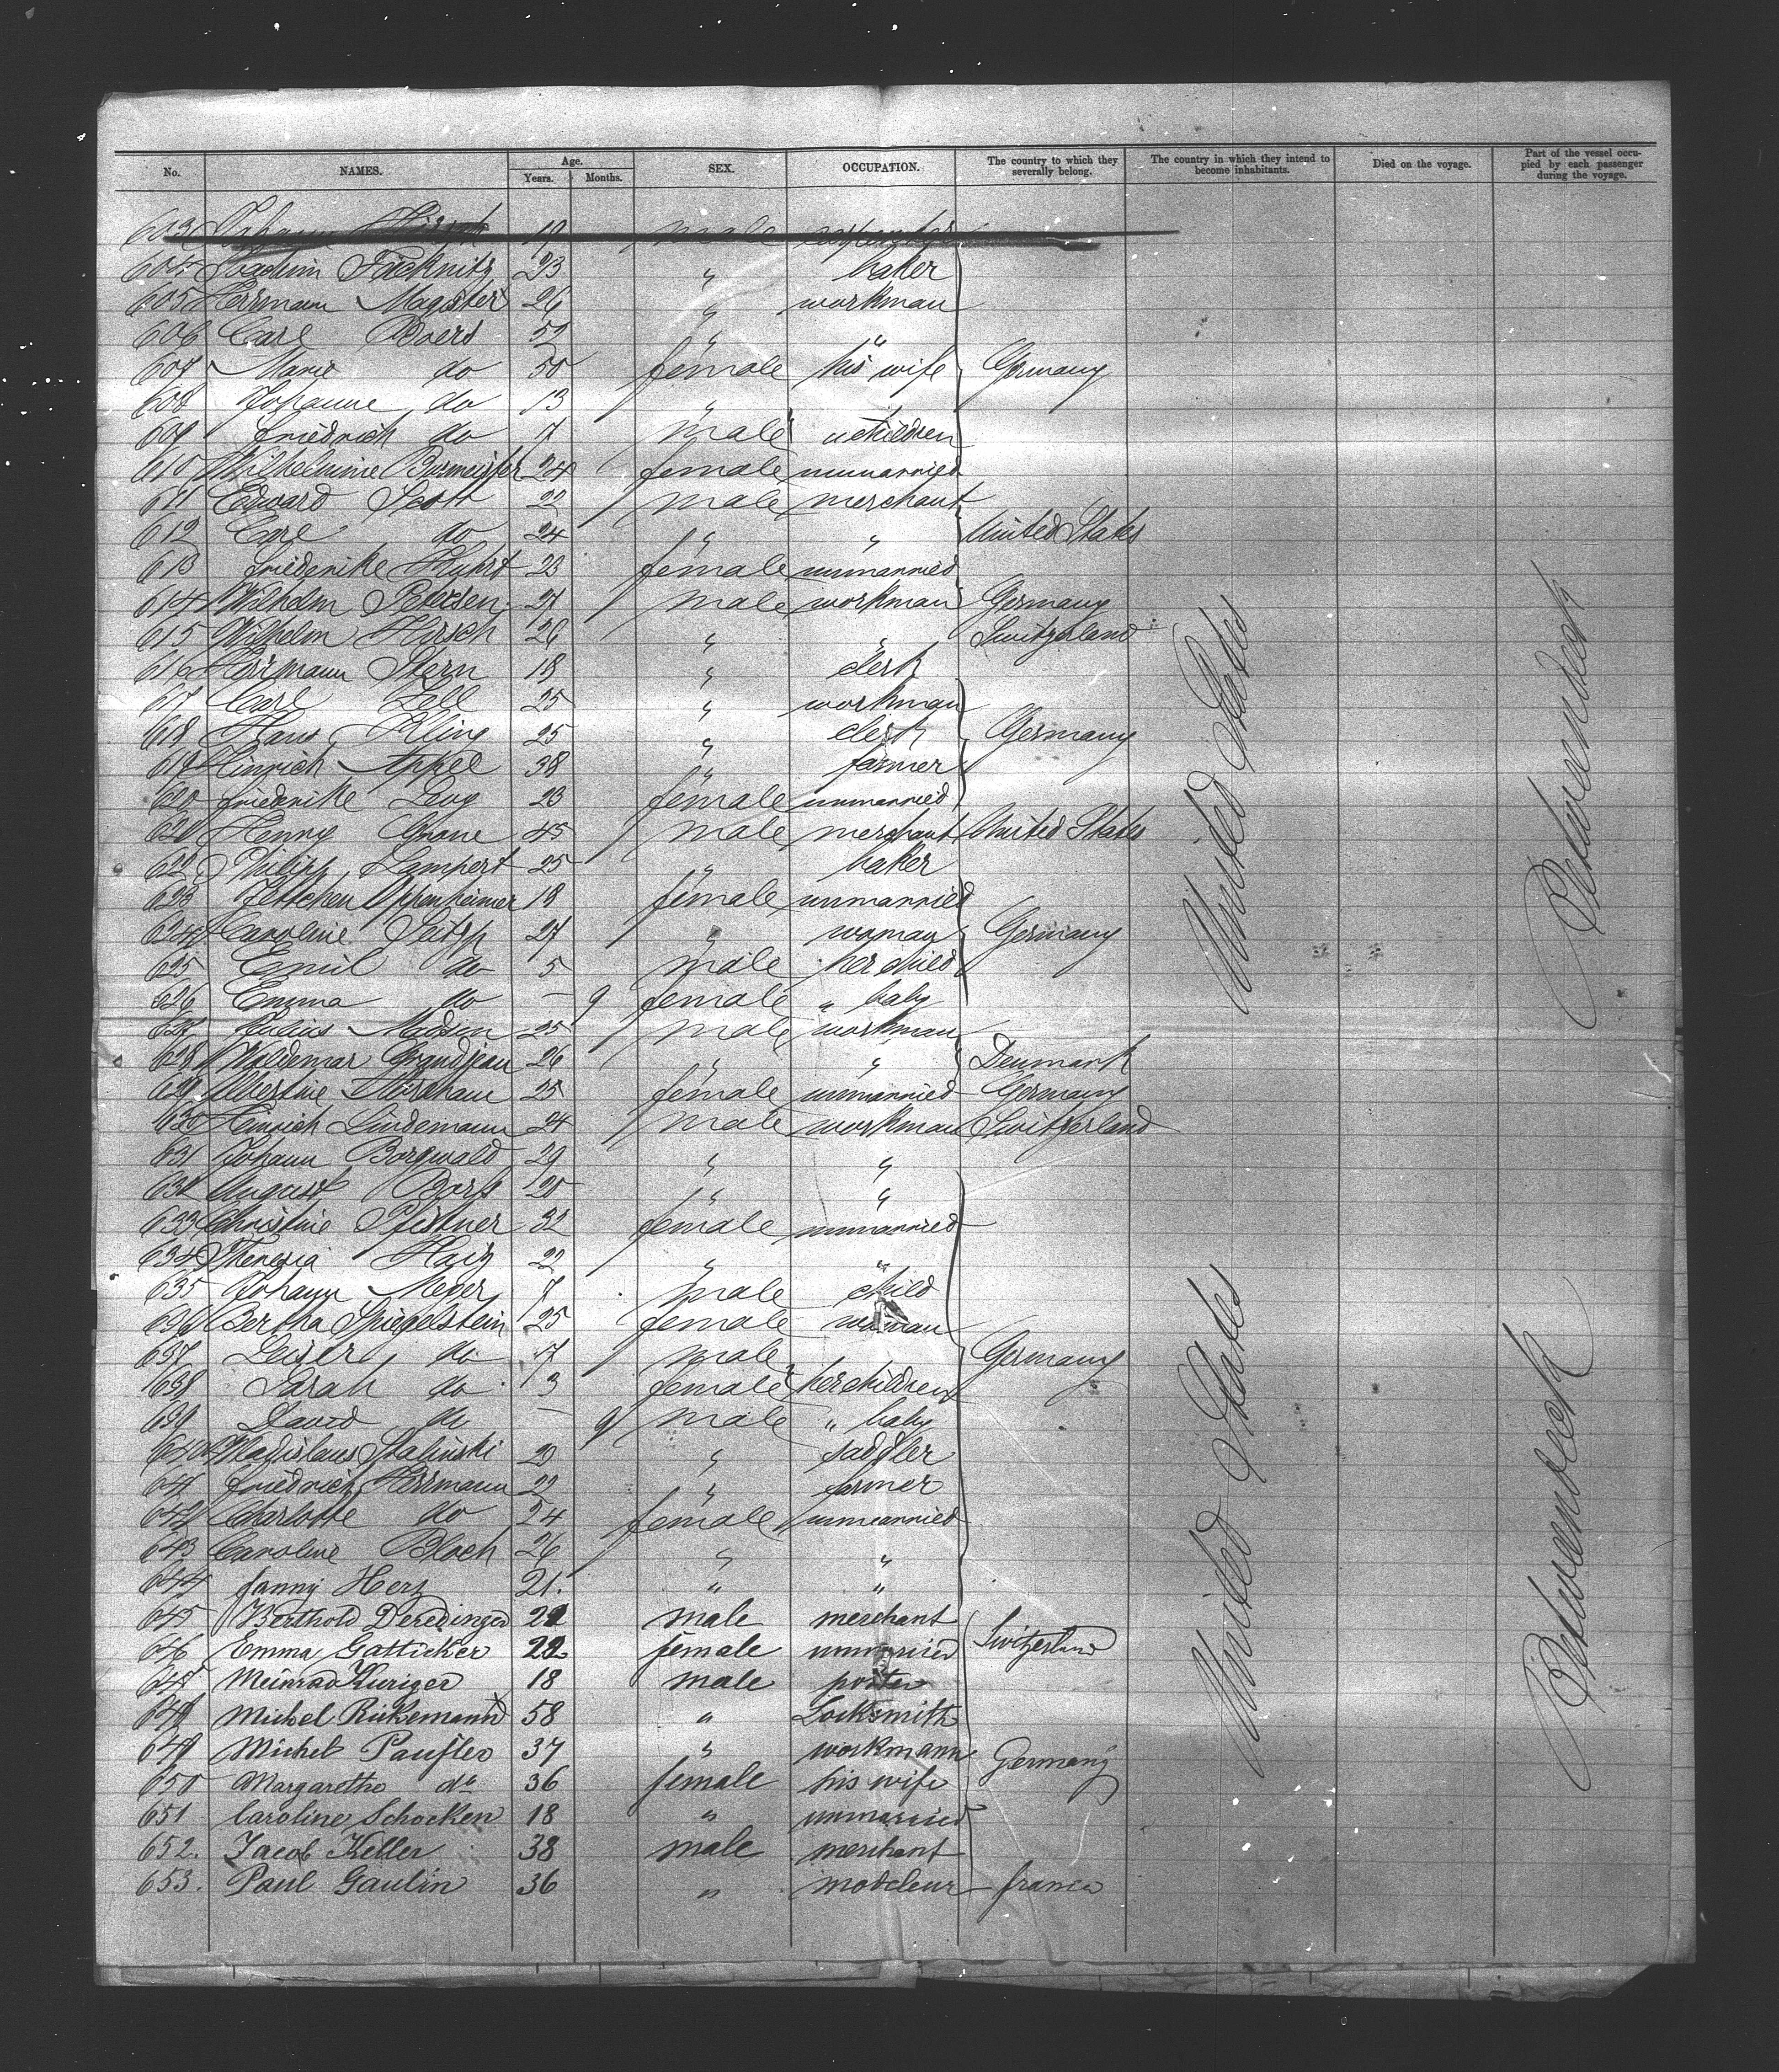 No. NAMES. Age. Years. Months. SEX. OCCUPATION. The country to which they severally belong. The country in which they intend to become inhabitants. Died on the voyage. Part of the vessel occupied by each passenger during the voyage.
603 Johann 19 male carpenter
604 Joachim 23 " baker
605 Herrmann Magister 26 " workman
606 Carl Boers 52 " "
607 Marie do 50 female his wife Germany
608 Johanne do 13 "
609 Friedrich do 7 male " children
610 Wilhelmine Burmeister 24 female unmarried
611 Edward Scott 22 male merchant
612 Carl do 24 " " United States
613 Friederike 23 female unmarried
614 Wilhelm Petersen 27 male workman Germany
615 Wilhelm Hirsch 26 " " Switzerland
616 Herrmann Stern 18 " clerk
617 Carl Zell 25 " workman
618 Hans Kling 25 " clerk Germany
619 Hinrich Appel 38 " farmer
620 Friederike Levy 23 female unmarried
621 Henry Grone 45 male merchant United States
622 Philipp Lampert 25 " baker
623 Jettchen Oppenheimer 18 female unmarried
624 Caroline 27 " woman Germany
625 Emil do 5 male her child
626 Emma do – 9 female " baby
627 Julius Madsen 25 male workman
628 Waldemar Grandjean 26 " " Denmark
629 Albertine Abraham 25 female unmarried Germany
630 Heinrich Lindemann 24 male workman Switzerland
631 Johann Borgwald 29 " "
632 August 20 " "
633 Christine Pfirtner 32 female unmarried
634 Theresia 22 " "
635 Johann Meyer 7 male child
636 Bertha Spiegelstein 25 female woman
637 Leiser do 7 male Germany
638 Sarah do 3 female her children
639 David do – 9 male " baby
640 Wladislaus Stalinski 29 " saddler
641 Friedrich Herrmann 22 " farmer
642 Charlotte do 24 female unmarried
643 Caroline Bloch 26 " "
644 Fanny Herz 21 " "
645 Berthold Deredinger male merchant
646 Emma Gatticker 22 female unmarried Switzerland
647 Meinrad Kuriger 18 male porter
648 Michel Rickemann 58 " Locksmith
649 Michel Paufler 37 " workmann Germany
650 Margaretha do 36 female his wife
651 Caroline Schocken 18 " unmarried
652. Jacob Keller 38 male merchant
653. Paul Gaulin 36 " modeleur france
United States
United States
Betweendeck
Betweendeck